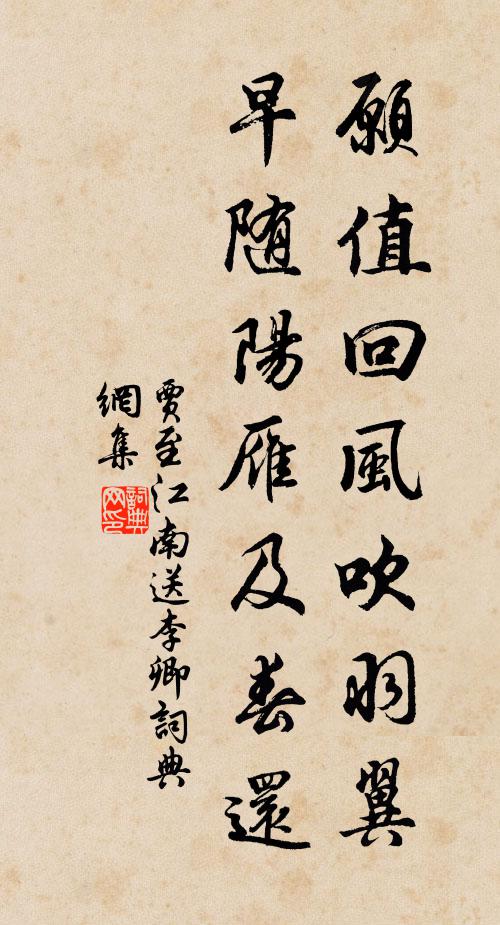 願值回風吹羽翼
早随陽雁及春還
賈至江南送李卿詞典
網集
詞典
网印